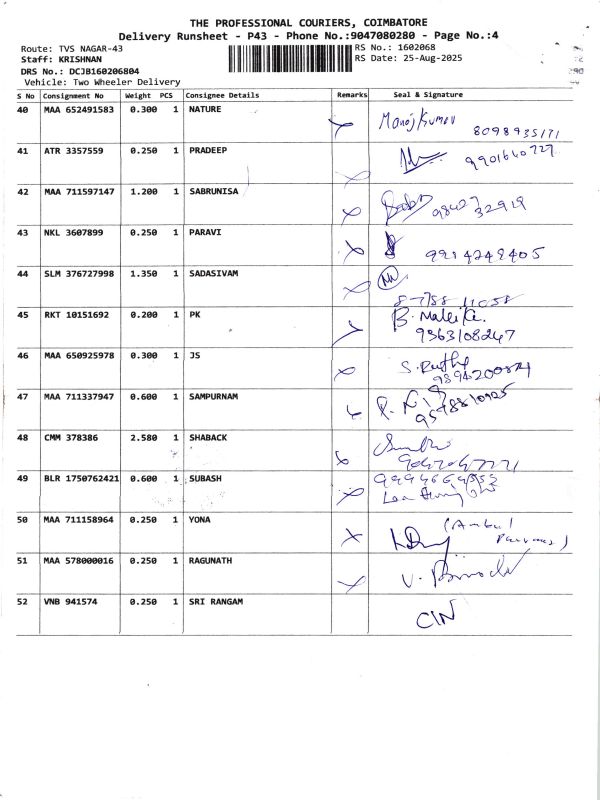 THE PROFESSIONAL COURIERS, COIMBATORE
Delivery Runsheet - P43 - Phone No.:9047080280 - Page No.:4
Route: TVS NAGAR-43
RS No.: 1602068
Staff: KRISHNAN
RS Date: 25-Aug-2025
DRS No.: DCJB160206804
Vehicle: Two Wheeler Delivery
S No Consignment No Weight PCS Consignee Details Remarks Seal & Signature
40 MAA 652491583 0.300 1 NATURE Manoj Kumar
8098935171
41 ATR 3357559 0.250 1 PRADEEP 9901640727
42 MAA 711597147 1.200 1 SABRUNISA 98427 32919
43 NKL 3607899 0.250 1 PARAVI
44 SLM 376727998 1.350 1 SADASIVAM
45 RKT 10151692 0.200 1 PK
9363108247
46 MAA 650925978 0.300 1 JS
47 MAA 711337947 0.600 1 SAMPURNAM
48 CMM 378386 2.580 1 SHABACK
49 BLR 1750762421 0.600 1 SUBASH
50 MAA 711158964 0.250 1 YONA
51 MAA 578000016 0.250 1 RAGUNATH
52 VNB 941574 0.250 1 SRI RANGAM